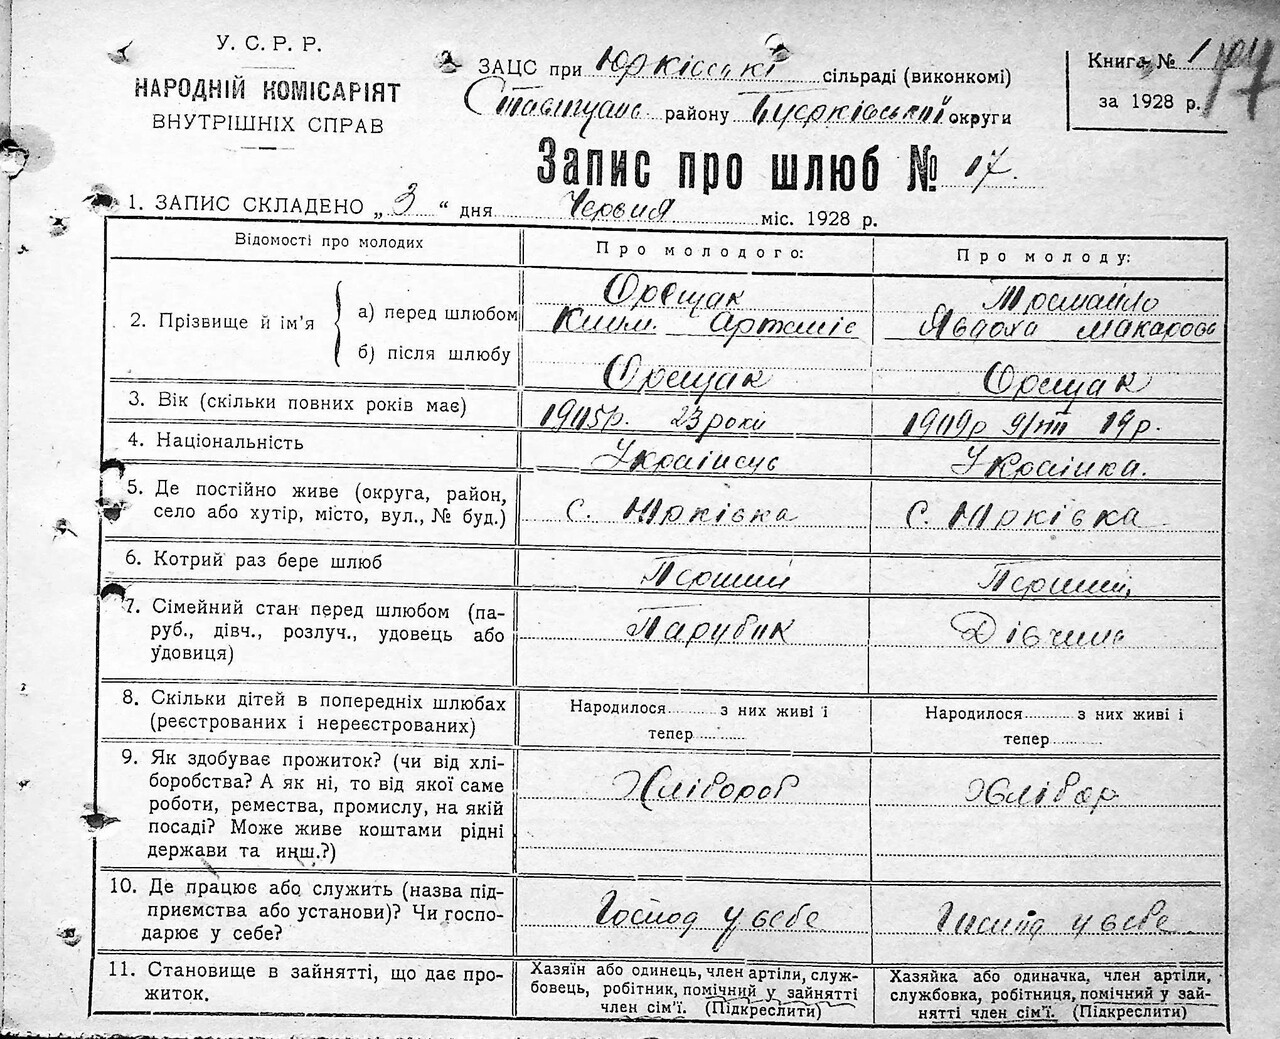 У. С. Р. Р.
НАРОДНІЙ КОМІСАРІЯТ
ВНУТРІШНІХ СПРАВ
ЗАЦС при Юрківські сільраді (виконкомі)
району округи
Книга № 1
за 1928 р.
Запис про шлюб № 17.
1. ЗАПИС СКЛАДЕНО „ 3 “ дня Червня міс. 1928 р.
Відомості про молодих
Про молодого:
Про молоду:
2. Прізвище й ім'я
а) перед шлюбом
б) після шлюбу
Орещак
Клим. Артеміє
Орещак
Явдоха Макарова
Орещак
3. Вік (скільки повних років має)
1905р. 23 роки
1909р 9/III 19 р.
4. Національність
Українець
Українка.
5. Де постійно живе (округа, район,
село або хутір, місто, вул., № буд.)
с. Юрківка
с. Юрківка
6. Котрий раз бере шлюб
Перший
Перший,
7. Сімейний стан перед шлюбом (па-
руб., дівч., розлуч., удовець або
удовиця)
Парубик
Дівчина
8. Скільки дітей в попередніх шлюбах
(реєстрованих і нереєстрованих)
Народилося.......... з них живі і
тепер..........
Народилося.......... з них живі і
тепер..........
9. Як здобуває прожиток? (чи від хлі-
боробства? А як ні, то від якої саме
роботи, ремества, промислу, на якій
посаді? Може живе коштами рідні
держави та инш.?)
Хлібороб
Хлібор
10. Де працює або служить (назва під-
приємства або установи)? Чи госпо-
дарює у себе?
Господ у себе
Господ у себе
11. Становище в зайнятті, що дає про-
житок.
Хазяїн або одинець, член артіли, служ-
бовець, робітник, помічний у зайнятті
член сім'ї. (Підкреслити)
Хазяйка або одиначка, член артіли,
службовка, робітниця, помічний у зай-
нятті член сім'ї. (Підкреслити)